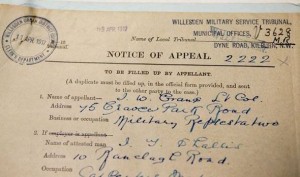 WILLESDEN MILITARY SERVICE TRIBUNAL,
MUNICIPAL OFFICES,
DYNE ROAD, KILBURN, N.W.
APR 1917
Name of Local Tribunal.
3628
NOTICE OF APPEAL.
2222
TO BE FILLED UP BY APPELLANT.
(A duplicate must be filled up, in the official form provided, and sent
to the other party in the case.)
1. Name of appellant— Lt Col.
Address 75 Craven Park Road
Business or occupation Military Representative
2. If employee is appellant—
Name of attested man J.
Address 10 Road.
Occupation